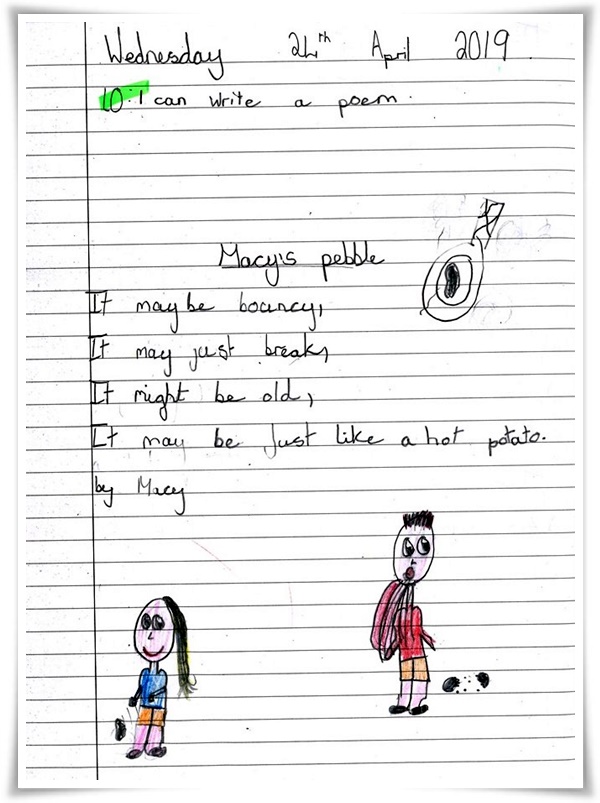 Wednesday 24th April 2019.
LO: I can write a poem.
Macy's pebble
It maybe bouncy,
It may just break,
It might be old,
It may be Just like a hot potato.
by Macy